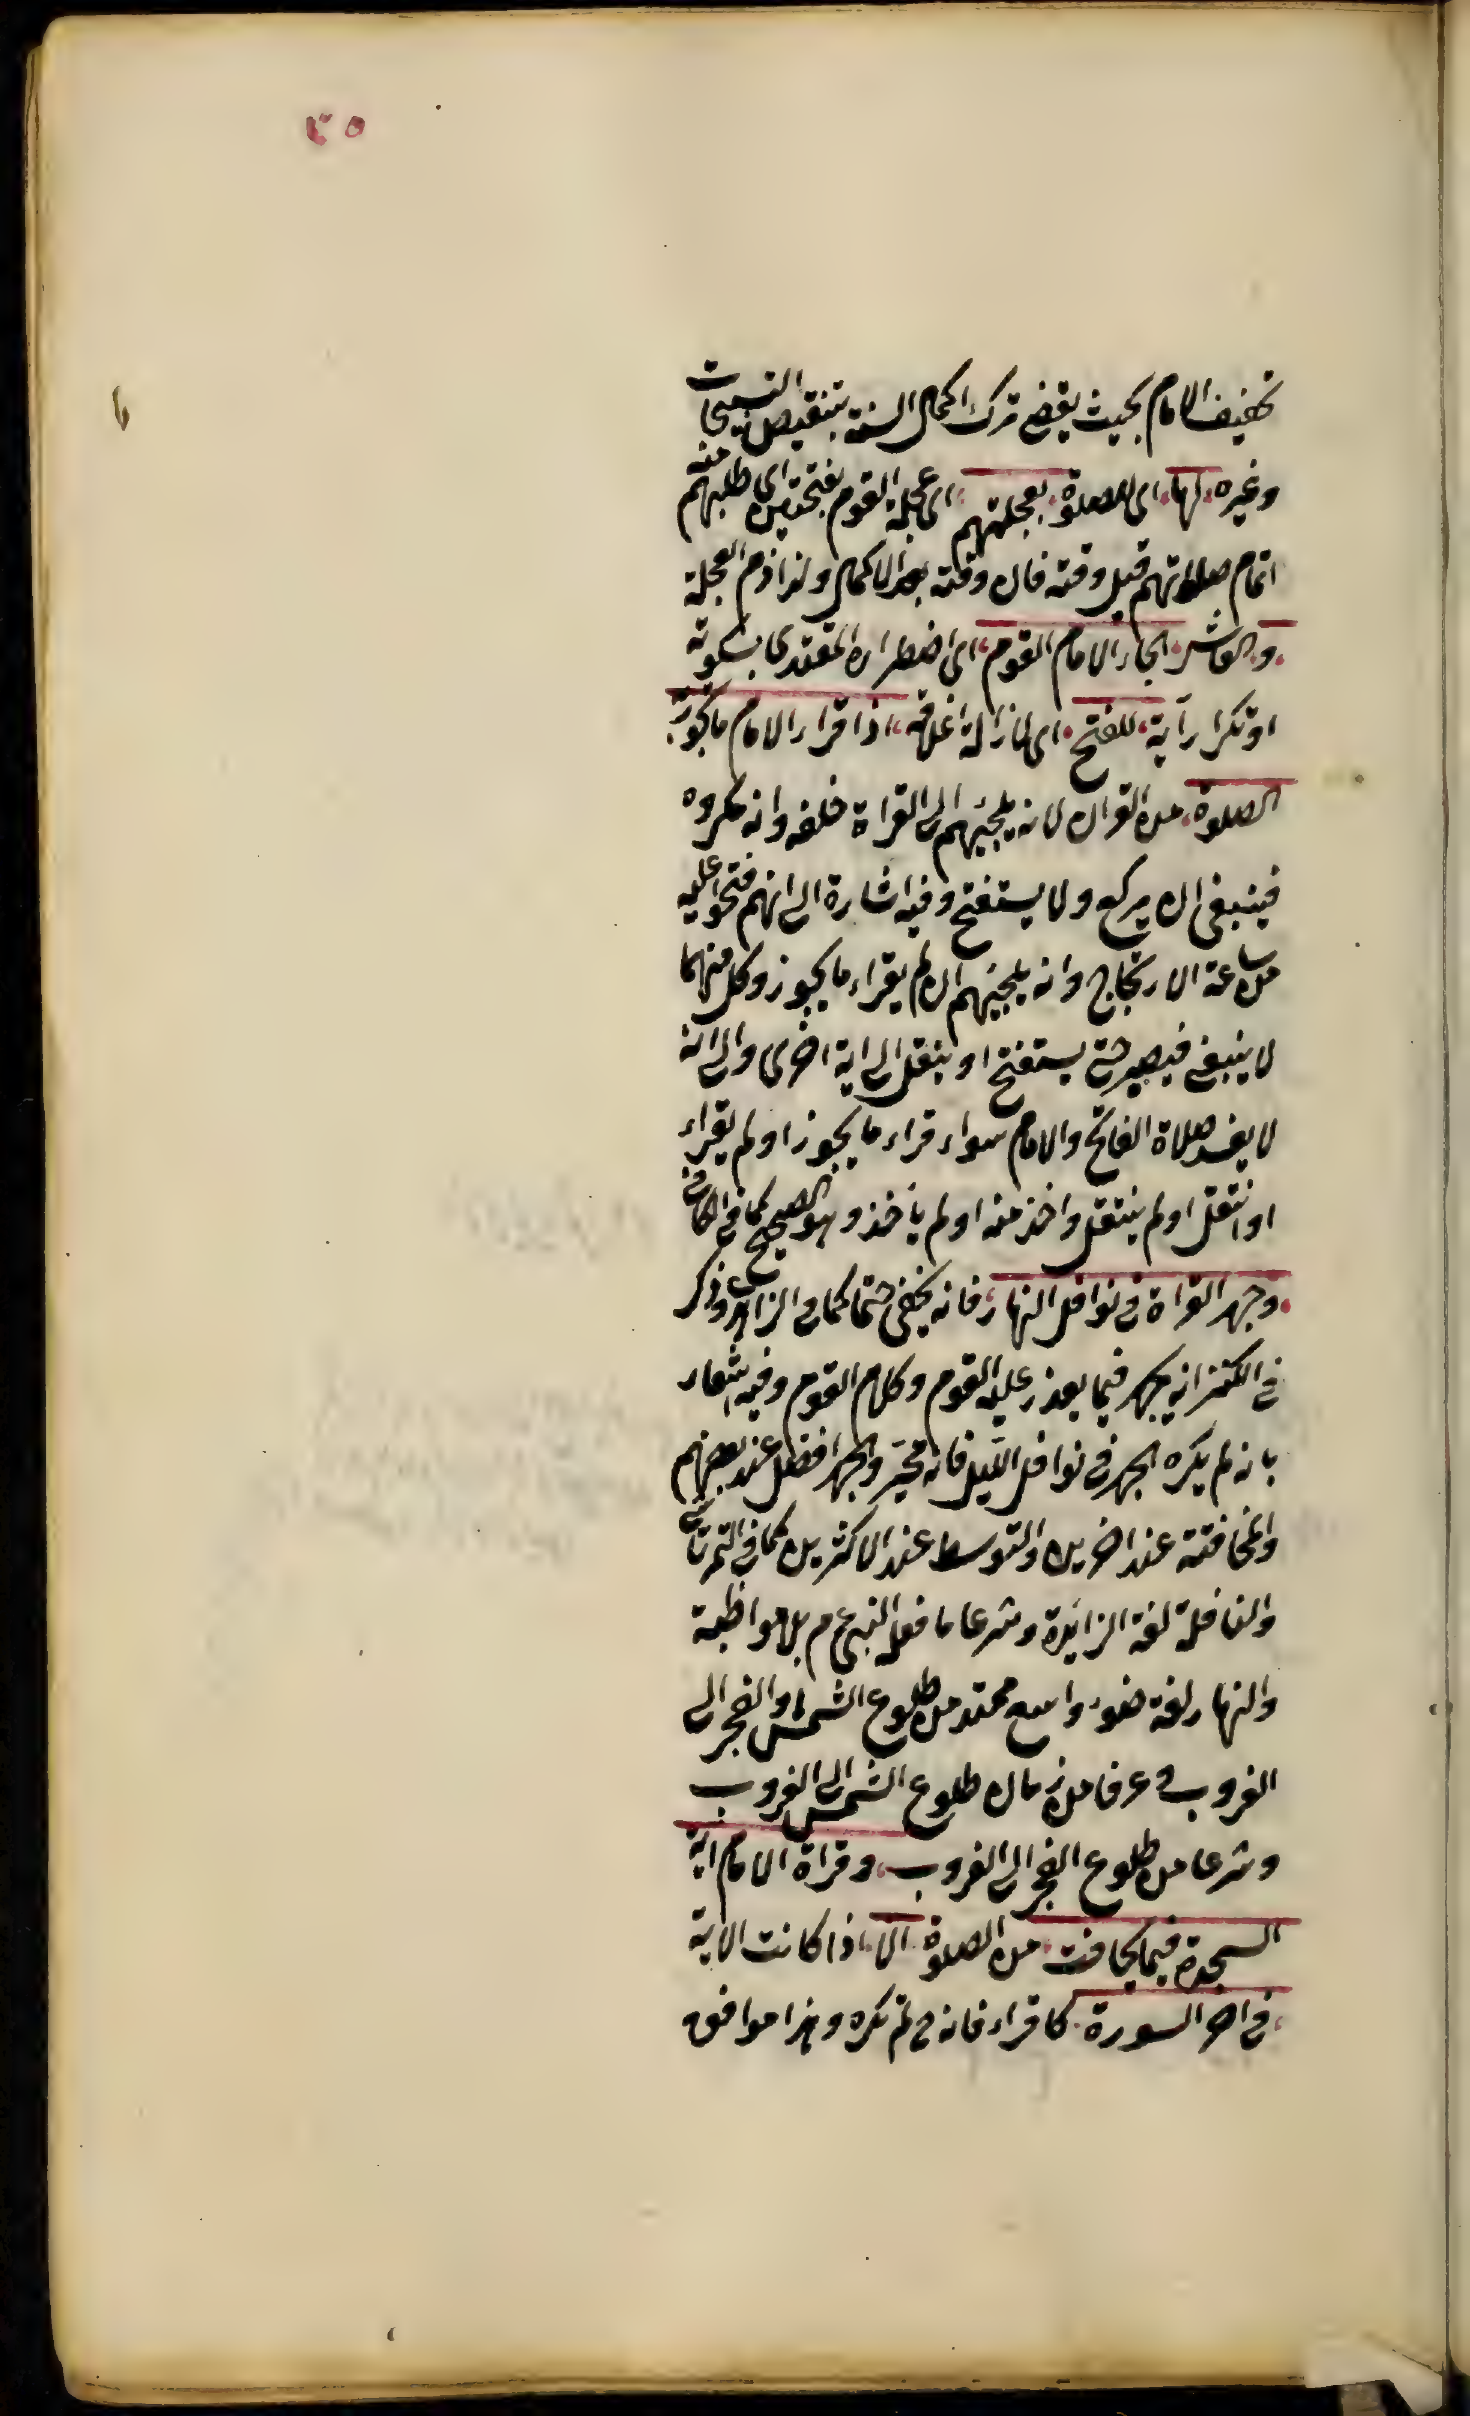 ٣٥
تخفيف الامام بحيث يفضي ترك اكمال السنة بتنقيص التسبيحات
وغيره لها اى للصلوة بعجلتهم اى عجلة القوم بفتحتين اى طلبهم منه
اتمام صلاتهم قبل وقته فان وقته بعد الاكمال ولذا ذم العجلة
و العاشر الجاء الامام القوم اى اضطراره المقتدى بسكوته
او تكرار آية للفتح اى لازالة اغلاقه اذا قراء الامام ما يجوز به
الصلوة من القران لانه يلجئهم الى القراة خلفه وانه مكروه
فينبغى ان يركع ولا يستفتح وفيه اشارة الى انهم فتحوا عليه
من ساعة الارتجاج وانه يلجئهم ان لم يقراء ما يجوز وكل منهما
لا ينبغى فيصير حتى يستفتح او ينقل الى اية اخرى والى انه
لا يفسد صلاة الفاتح والامام سواء قراء ما يجوز او لم يقراء
او انتقل او لم ينتقل واخذ منه او لم يأخذ وهو الصحيح كما فى الكافى
وجهر القراة فى نوافل النهار فانه يخفى حتما كما فى الزاهدى وذكر
فى الكنز انه يجهر فيما يعذر عليه القوم وكلام القوم وفيه اشعار
بانه لم يكره الجهر فى نوافل الليل فانه مخير والجهر افضل عند بعضهم
والمخافتة عند اخرين والتوسط عند الاكثرين كما فى التمرتاشى
والنافلة لغة الزائدة وشرعا ما فعله النبى عم بلا مواظبة
والنهار لغة ضوء واسع ممتد من طلوع الشمس او الفجر الى
الغروب و عرفا من زمان طلوع الشمس الى الغروب
وشرعا من طلوع الفجر الى الغروب وقراة الامام اية
السجدة فيما يخافت من الصلوة الا اذا كانت الاية
فى اخر السورة كا قراء فانه ح لم تكره وهذا موافق